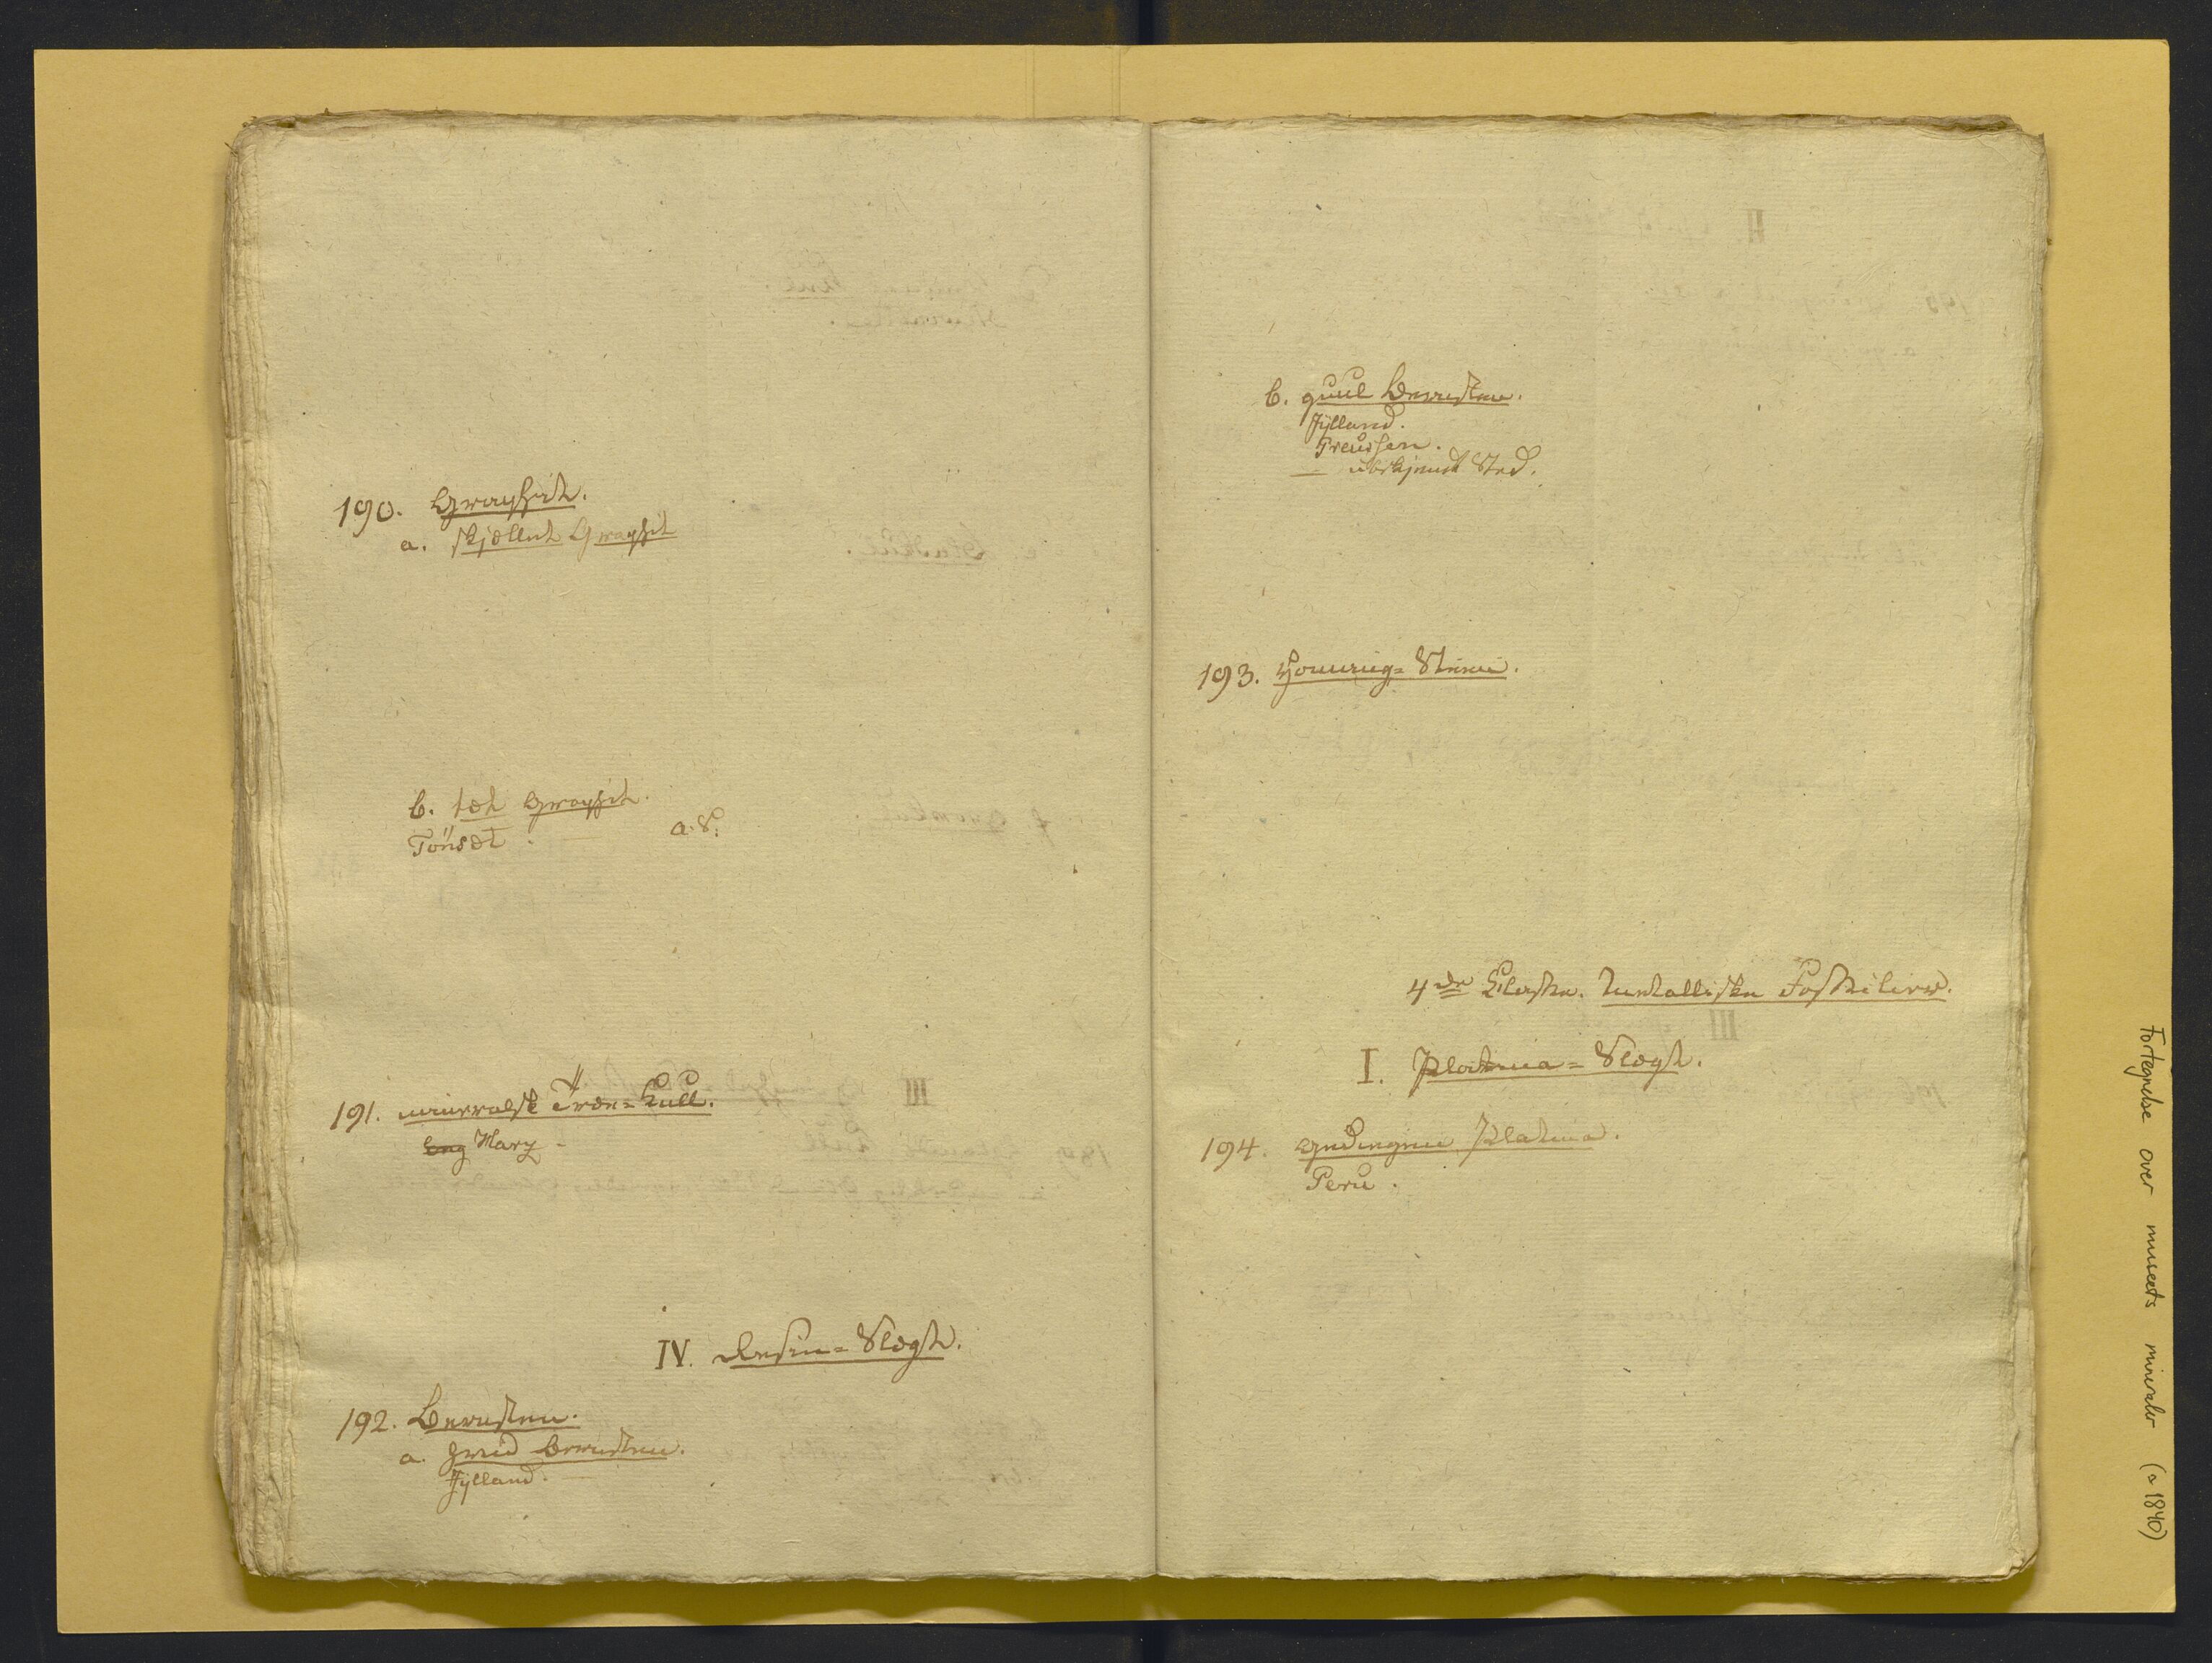 190. Graphit.
a. skjællet Graphit
b. tæt Graphit.
Tönset. — a. S.
191. mineralsk Træe=Kull.
Eng Harz —
IV. Resin=Slægt.
192. Bernsteen.
a. hvid Bernsteen.
Jylland. —
b. guul Bernsteen.
Jylland.
Preussen.
— ubekjendt Sted.
193. Honning=Steen.
4de Classe. Metalliske Fossilier.
I. Platina=Slægt.
194. Gedingen Platina.
Peru.
Fortegnelse over museets mineraler (a 1840)